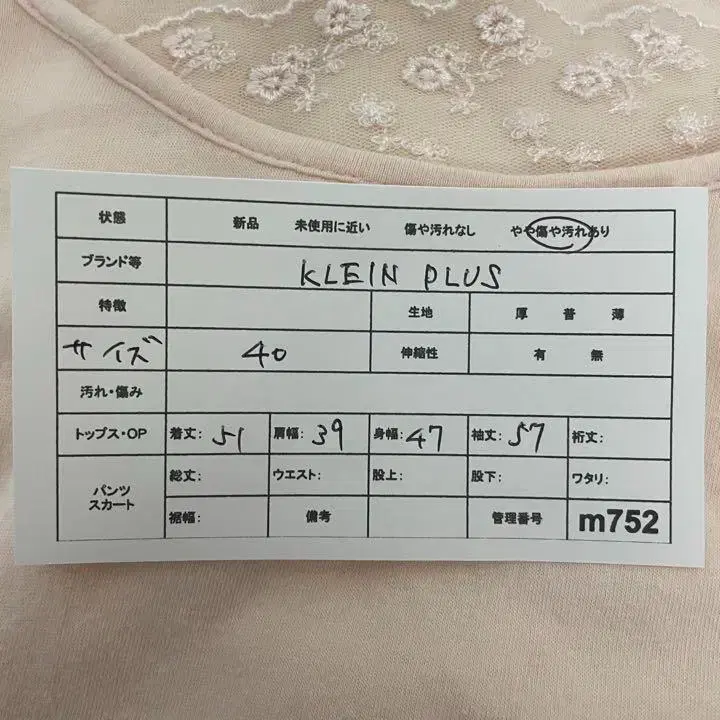 状態 新品 未使用に近い 傷や汚れなし やや傷や汚れあり
ブランド等 KLEIN PLUS
特徴 生地 厚 普 薄
サイズ 40 伸縮性 有 無
汚れ・傷み
トップス・OP 着丈: 51 肩幅: 39 身幅: 47 袖丈: 57 裄丈:
パンツ スカート 総丈: ウエスト: 股上: 股下: ワタリ:
裾幅: 備考 管理番号 m752